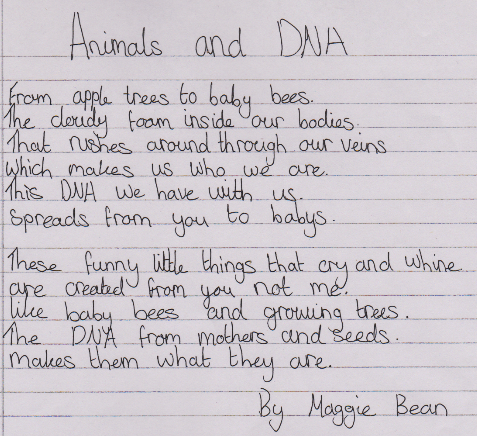 Animals and DNA
From apple trees to baby bees.
The cloudy foam inside our bodies.
That rushes around through our veins
which makes us who we are.
This DNA we have with us
spreads from you to babys.
These funny little things that cry and whine
are created from you not me.
like baby bees and growing trees.
The DNA from mothers and seeds.
makes them what they are.
By Maggie Bean